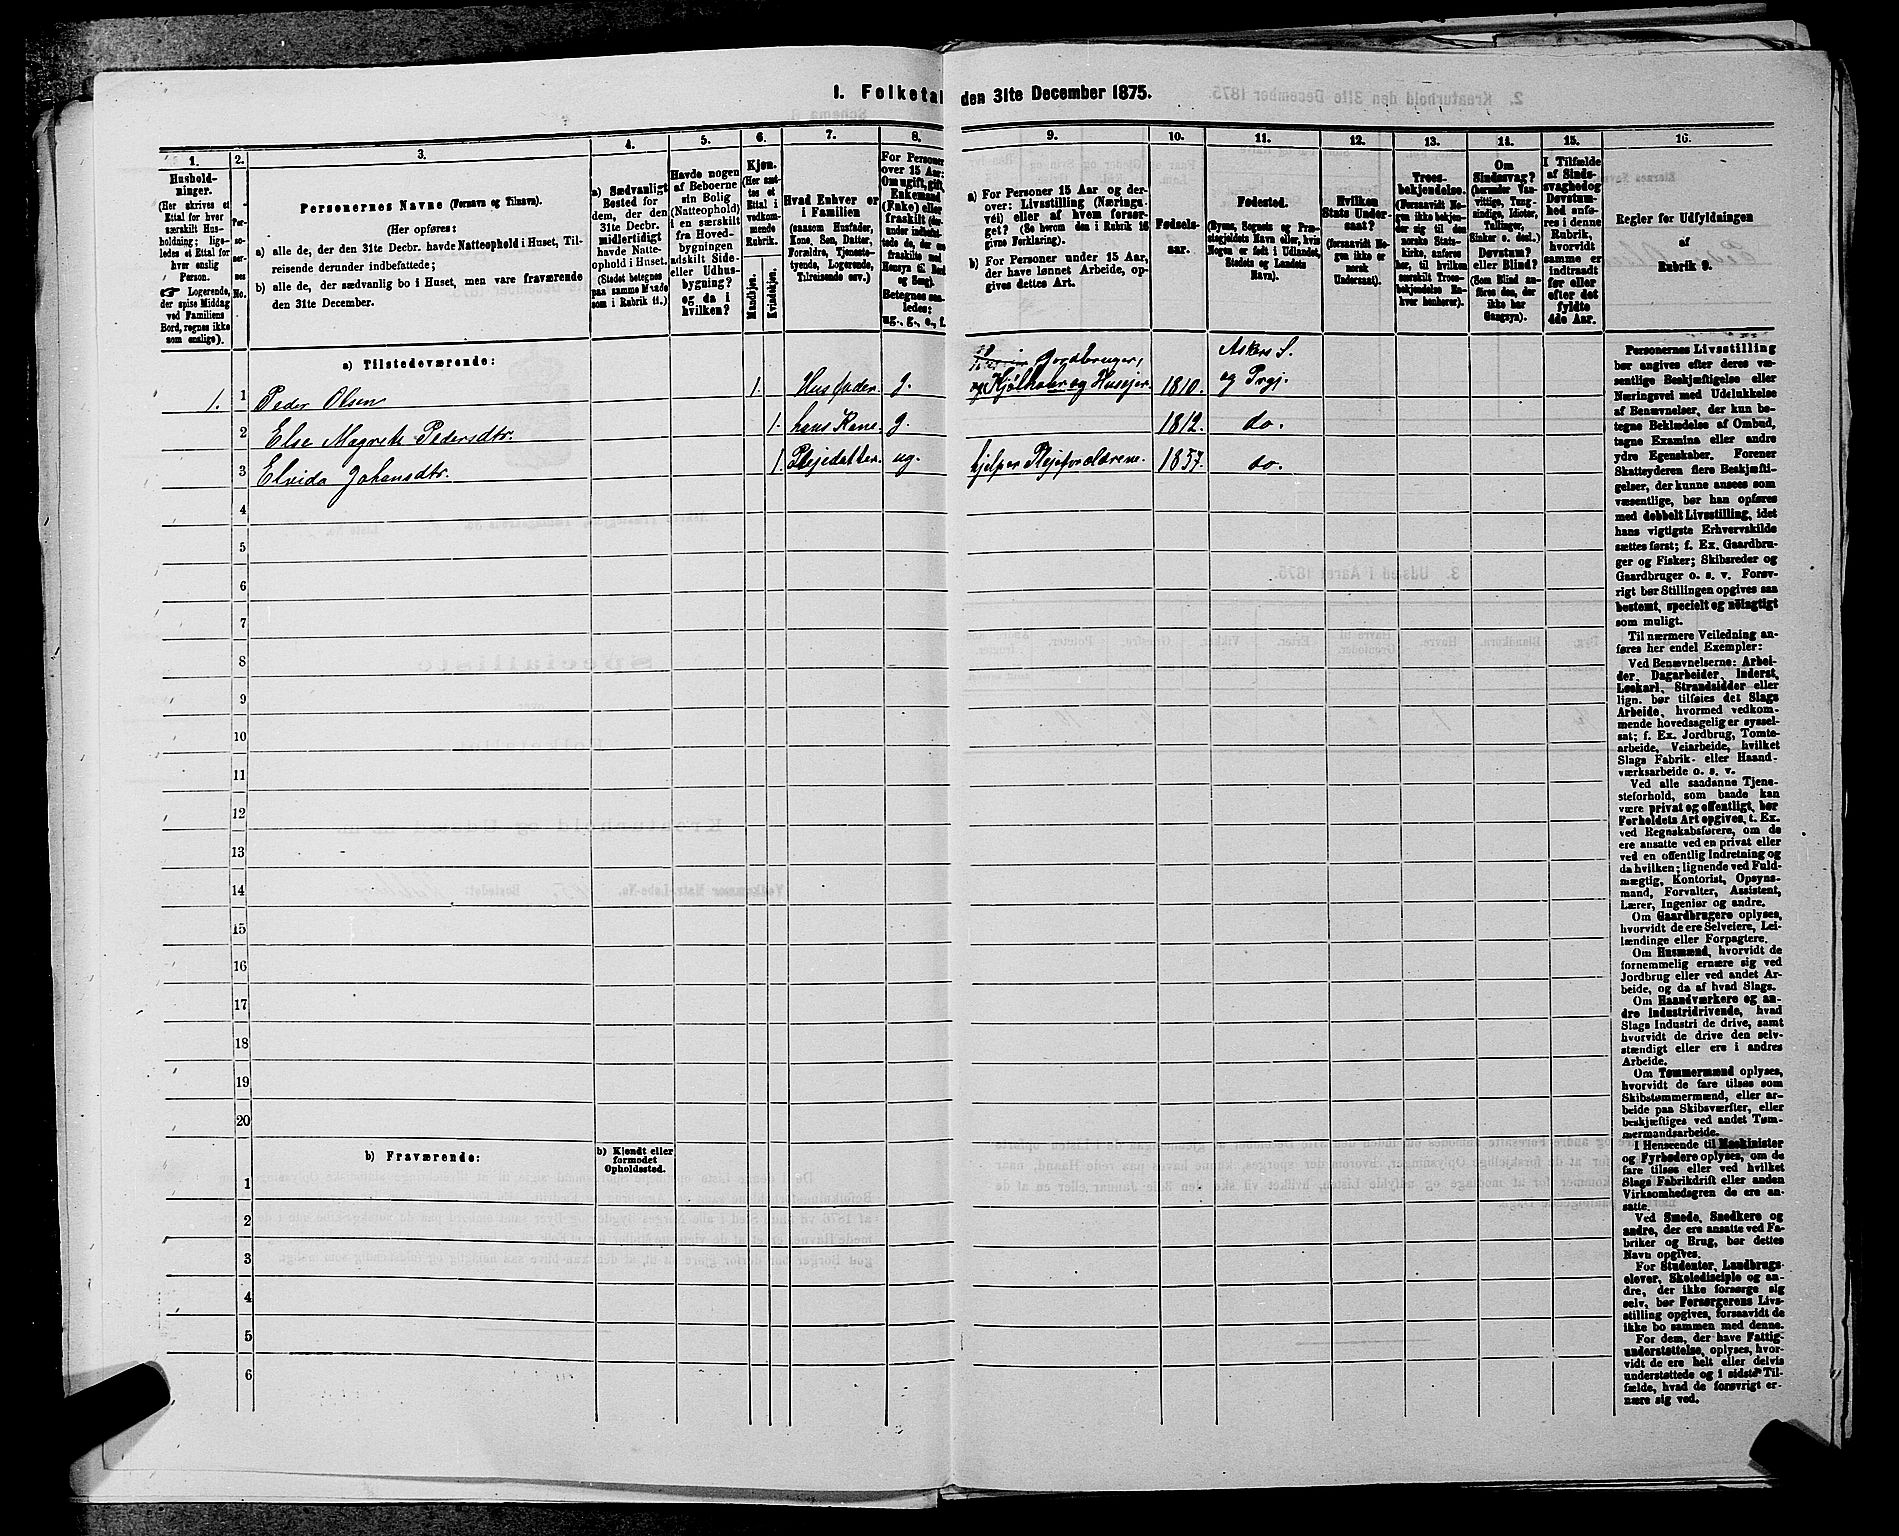 1. Folketal den 31te December 1875.
1. 2. 3. 4. 5. 6. 7. 8. 9. 10. 11. 12. 13. 14. 15. 16.
Hushold-
ninger.
(Her skrives et
Ettal for hver
særskilt Hus-
holdning; lige-
ledes et Ettal for
hver enslig
Person.
☞ Logerende,
der spise Middag
ved Familiens
Bord, regnes ikke
som enslige).
Per-
so-
ner-
nes
No.
Personernes Navne (Fornavn og Tilnavn).
(Her opføres:
a) alle de, der den 31te Decbr. havde Natteophold i Huset, Til-
reisende derunder indbefattede;
b) alle de, der sædvanlig bo i Huset, men vare fraværende
den 31te December.
a) Sædvanligt
Bosted for
dem, der den
31te Decbr.
midlertidigt
havde Natte-
ophold i Huset.
(Stedet betegnes
paa samme Maade
som i Rubrik 11.)
Havde nogen
af Beboerne
sin Bolig
(Natteophold)
i en særskilt
fra Hoved-
bygningen
adskilt Side-
eller Udhus-
bygning?
og da i
hvilken?
Kjøn.
(Her sæt-
tes et
Ettal i
vedkom-
mende
Rubrik.
Mandkjøn.
Kvindekjøn.
Hvad Enhver er
i Familien
(saasom Husfader,
Kone, Søn, Datter,
Forældre, Tjeneste-
tyende, Logerende,
Tilreisende osv.)
For Personer
over 15 Aar:
Om ugift, gift,
Enkemand
(Enke) eller
fraskilt
Betegnes saa-
ledes:
ug., g., e., f.
a) For Personer 15 Aar og der-
over: Livsstilling (Nærings-
vei) eller af hvem forsør-
get? (Se herom den i Rubrik 16
givne Forklaring).
b) For Personer under 15 Aar,
der have lønnet Arbeide, op-
gives dettes Art.
Fødsels-
aar.
Fødested.
(Byens, Sognets og Præ-
stegjeldets Navn eller, hvis
Nogen er født i Udlandet,
Stedets og Landets
Navn).
Hvilken
Stats Under-
saat?
(forsaavidt No-
gen ikke er
norsk
Undersaat).
Troes-
bekjendelse.
(Forsaavidt No-
gen ikke bekjen-
der sig til den
norske Stats-
kirke, anføres
her, til hvilken
særskilt Troes-
bekjendelse En-
hver henhører).
Om
Sindssvag?
(herunder Van-
vittige, Tung-
sindige, Idioter,
Taltinger,
Sinker o. desl.)
Døvstum?
eller Blind?
(Som Blind an-
føres den, der
ikke har
Gangsyn).
I Tilfælde
af Sinds-
svaghed og
Døvstum-
hed anfø-
res i denne
Rubrik,
hvorvidt
samme er
indtraadt
før eller
efter det
fyldte
4de Aar.
Regler for Udfyldningen
af
Rubrik 9.
a) Tilstedeværende:
Gardbruger, Askers S.
1. 1 Peder Olsen 1. Husfader g. og Kjølhaler og Huseier. 1810. og Prgj.
2 Else Magrete Pedersdtr. 1. hans Kone. g. 1812. do.
3 Elvida Johansdtr. 1. Plejedatter. ug. hjelper Plejeforældrene. 1857. do.
4
5
6
7
8
9
10
11
12
13
14
15
16
17
18
19
20
b) Fraværende:
b) Kjendt eller
formodet
Opholdssted.
1
2
3
4
5
6
Personernes Livsstilling
bør angives efter deres væ-
sentlige Beskjæftigelse eller
Næringsvei med Udelukkelse
af Benævnelser, der kun be-
tegne Beklædelse af Ombud,
tagne Examina eller andre
ydre Egenskaber. Forener
Skatteyderen flere Beskjæfti-
gelser, der kunne ansees som
væsentlige, bør han opføres
med dobbelt Livsstilling, idet
hans vigtigste Erhvervskilde
sættes først; f. Ex. Gaardbru-
ger og Fisker; Skibsreder og
Gaardbruger o. s. v. Forøv-
rigt bør Stillingen opgives saa
bestemt, specielt og nøiagtigt
som muligt.
Til nærmere Veiledning an-
føres her endel Exempler:
Ved Benævnelserne: Arbei-
der, Dagarbeider, Inderst,
Løskarl, Strandsidder eller
lign. bør tilføies det Slags
Arbeide, hvormed vedkom-
mende hovedsagelig er syssel-
sat; f. Ex. Jordbrug, Tomte-
arbeide, Veiarbeide, hvilket
Slags Fabrik- eller Haand-
værksarbeide o. s. v.
Ved alle saadanne Tjene-
steforhold, som baade kan
være privat og offentligt, bør
Forholdets Art opgives, t. Ex.
ved Regnskabsførere, om de
ere ansatte ved en privat eller
ved en offentlig Indretning og
da hvilken; lignende ved Fuld-
mægtig, Kontorist, Opsyns-
mand, Forvalter, Assistent,
Lærer, Ingeniør og andre.
Om Gaardbrugere oplyses,
hvorvidt de ere Selveiere, Lei-
lændinge eller Forpagtere.
Om Husmænd, hvorvidt de
fornemmelig ernære sig ved
Jordbrug eller ved andet Ar-
beide, og da af hvad Slags.
Om Haandværkere og an-
dre Industridrivende, hvad
Slags Industri de drive, samt
hvorvidt de drive den selv-
stændigt eller ere i andres
Arbeide.
Om Tømmermænd oplyses,
hvorvidt de fare tilsøs som
Skibstømmermænd, eller ar-
beide paa Skibsværfter, eller
beskjæftiges ved andet Tøm-
mermandsarbeide.
I Henseende til Maskinister
og Fyrbødere oplyses, om de
fare tilsøs eller ved hvilket
Slags Fabrikdrift eller anden
Virksomhedsgren de ere an-
satte.
Ved Smede, Snedkere og
andre, der ere ansatte ved Fa-
briker og Brug, bør dettes
Navn opgives.
For Studenter, Landbrugs-
elever, Skoledisciple og an-
dre, der ikke forsørge sig
selv, bør Forsørgerens Livs-
stilling opgives, forsaavidt de
ikke bo sammen med denne.
For dem, der have Fattig-
understøttelse, oplyses, hvor-
vidt de ere helt eller delvis
understøttede og i sidste Til-
fælde, hvad de forøvrigt er-
nære sig ved.